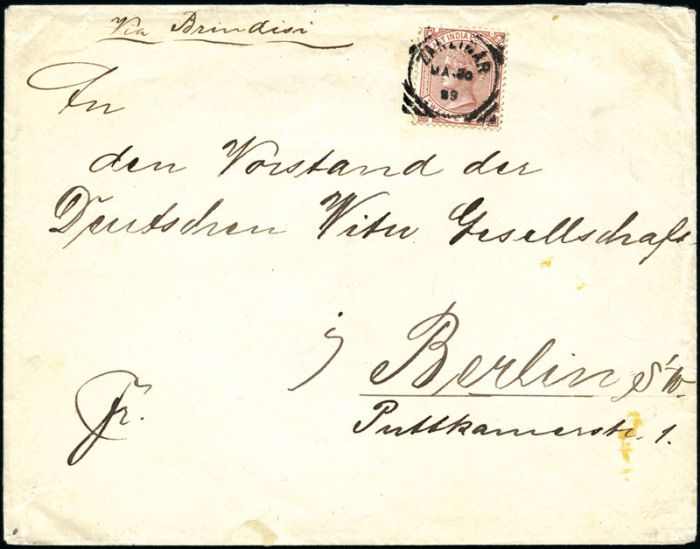 Via Brindisi
T INDIA P
ZANZIBAR
MA 30
89
An
den Vorstand der
Deutschen Witu Gesellschaft
Berlin S.W.
Puttkamerstr. 1.
Fr.